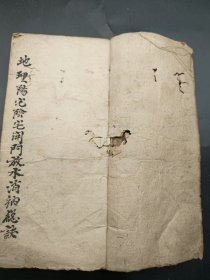 地理陽宅陰宅開門放水消納總訣